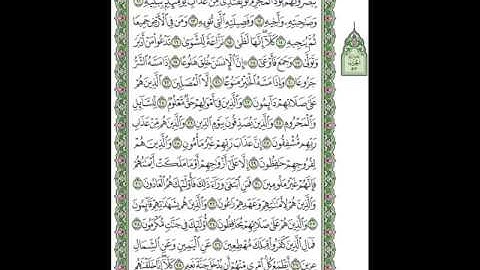 يُبَصَّرُونَهُمْ يَوَدُّ ٱلْمُجْرِمُ لَوْ يَفْتَدِى مِنْ عَذَابِ يَوْمِئِذٍۭ بِبَنِيهِ ١١
وَصَٰحِبَتِهِۦ وَأَخِيهِ ١٢ وَفَصِيلَتِهِ ٱلَّتِى تُـْٔوِيهِ ١٣ وَمَن فِى ٱلْأَرْضِ جَمِيعًا
ثُمَّ يُنجِيهِ ١٤ كَلَّآ إِنَّهَا لَظَىٰ ١٥ نَزَّاعَةً لِّلشَّوَىٰ ١٦ تَدْعُوا۟ مَنْ أَدْبَرَ
وَتَوَلَّىٰ ١٧ وَجَمَعَ فَأَوْعَىٰٓ ١٨ إِنَّ ٱلْإِنسَٰنَ خُلِقَ هَلُوعًا ١٩ إِذَا مَسَّهُ ٱلشَّرُّ
جَزُوعًا ٢٠ وَإِذَا مَسَّهُ ٱلْخَيْرُ مَنُوعًا ٢١ إِلَّا ٱلْمُصَلِّينَ ٢٢ ٱلَّذِينَ هُمْ
عَلَىٰ صَلَاتِهِمْ دَآئِمُونَ ٢٣ وَٱلَّذِينَ فِىٓ أَمْوَٰلِهِمْ حَقٌّ مَّعْلُومٌ ٢٤ لِّلسَّآئِلِ
وَٱلْمَحْرُومِ ٢٥ وَٱلَّذِينَ يُصَدِّقُونَ بِيَوْمِ ٱلدِّينِ ٢٦ وَٱلَّذِينَ هُم مِّنْ عَذَابِ
رَبِّهِم مُّشْفِقُونَ ٢٧ إِنَّ عَذَابَ رَبِّهِمْ غَيْرُ مَأْمُونٍ ٢٨ وَٱلَّذِينَ هُمْ
لِفُرُوجِهِمْ حَٰفِظُونَ ٢٩ إِلَّا عَلَىٰٓ أَزْوَٰجِهِمْ أَوْ مَا مَلَكَتْ أَيْمَٰنُهُمْ
فَإِنَّهُمْ غَيْرُ مَلُومِينَ ٣٠ فَمَنِ ٱبْتَغَىٰ وَرَآءَ ذَٰلِكَ فَأُو۟لَٰٓئِكَ هُمُ ٱلْعَادُونَ ٣١
وَٱلَّذِينَ هُمْ لِأَمَٰنَٰتِهِمْ وَعَهْدِهِمْ رَٰعُونَ ٣٢ وَٱلَّذِينَ هُم بِشَهَٰدَٰتِهِمْ قَآئِمُونَ
٣٣ وَٱلَّذِينَ هُمْ عَلَىٰ صَلَاتِهِمْ يُحَافِظُونَ ٣٤ أُو۟لَٰٓئِكَ فِى جَنَّٰتٍ مُّكْرَمُونَ ٣٥
فَمَالِ ٱلَّذِينَ كَفَرُوا۟ قِبَلَكَ مُهْطِعِينَ ٣٦ عَنِ ٱلْيَمِينِ وَعَنِ ٱلشِّمَالِ
عِزِينَ ٣٧ أَيَطْمَعُ كُلُّ ٱمْرِئٍ مِّنْهُمْ أَن يُدْخَلَ جَنَّةَ نَعِيمٍ ٣٨ كَلَّآ إِنَّا خَلَقْنَٰهُم